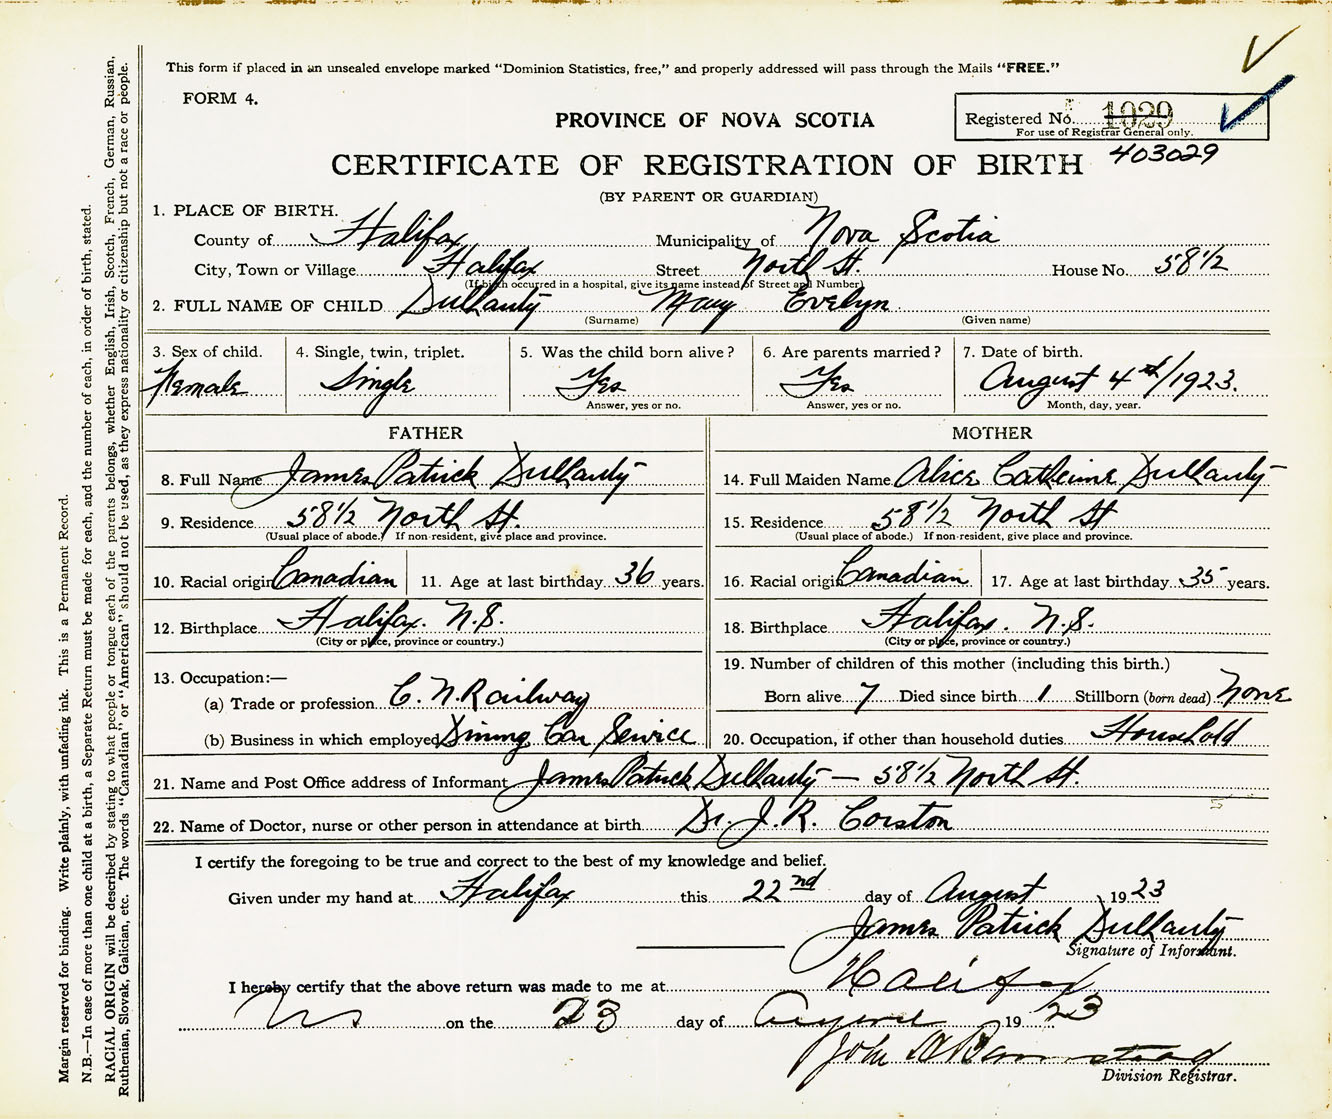 This form if placed in an unsealed envelope marked "Dominion Statistics, free," and properly addressed will pass through the Mails "FREE."
FORM 4.
PROVINCE OF NOVA SCOTIA
Registered No. 1029
For use of Registrar General only.
403029
CERTIFICATE OF REGISTRATION OF BIRTH
(BY PARENT OR GUARDIAN)
1. PLACE OF BIRTH.
County of Halifax Municipality of Nova Scotia
City, Town or Village Halifax Street North St. House No. 58 1/2
(If birth occurred in a hospital, give its name instead of Street and Number)
2. FULL NAME OF CHILD Dullanty Mary Evelyn
(Surname) (Given name)
3. Sex of child. 4. Single, twin, triplet. 5. Was the child born alive? 6. Are parents married? 7. Date of birth.
Female Single Yes Yes August 4th/1923.
Answer, yes or no. Answer, yes or no. Month, day, year.
FATHER MOTHER
8. Full Name James Patrick Dullanty 14. Full Maiden Name Alice Catheine Dullanty
9. Residence 58 1/2 North St. 15. Residence 58 1/2 North St
(Usual place of abode.) If non-resident, give place and province. (Usual place of abode.) If non-resident, give place and province.
10. Racial origin Canadian 11. Age at last birthday 36 years. 16. Racial origin Canadian 17. Age at last birthday 35 years.
12. Birthplace Halifax. N.S. 18. Birthplace Halifax. N.S.
(City or place, province or country.) (City or place, province or country.)
13. Occupation:— 19. Number of children of this mother (including this birth.)
(a) Trade or profession C. N. Railway Born alive 7 Died since birth 1 Stillborn (born dead) None
(b) Business in which employed Dining Car Service 20. Occupation, if other than household duties Household
21. Name and Post Office address of Informant James Patrick Dullanty — 58 1/2 North St.
22. Name of Doctor, nurse or other person in attendance at birth Dr. J. R. Corston
I certify the foregoing to be true and correct to the best of my knowledge and belief.
Given under my hand at Halifax this 22nd day of August 1923
James Patrick Dullanty
Signature of Informant.
I hereby certify that the above return was made to me at Halifax
NS on the 23 day of August 1923
John
Division Registrar.
Margin reserved for binding. Write plainly, with unfading ink. This is a Permanent Record.
N.B.—In case of more than one child at a birth, a Separate Return must be made for each, and the number of each, in order of birth, stated.
RACIAL ORIGIN will be described by stating to what people or tongue each of the parents belongs, whether English, Irish, Scotch, French, German, Russian,
Ruthenian, Slovak, Galician, etc. The words "Canadian" or "American" should not be used, as they express nationality or citizenship but not a race or people.